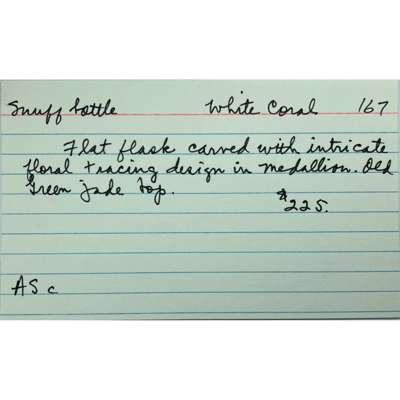 Snuff bottle White Coral 167
Flat flask carved with intricate
floral tracing design in medallion. Old
Green jade top.
$225.
AS c